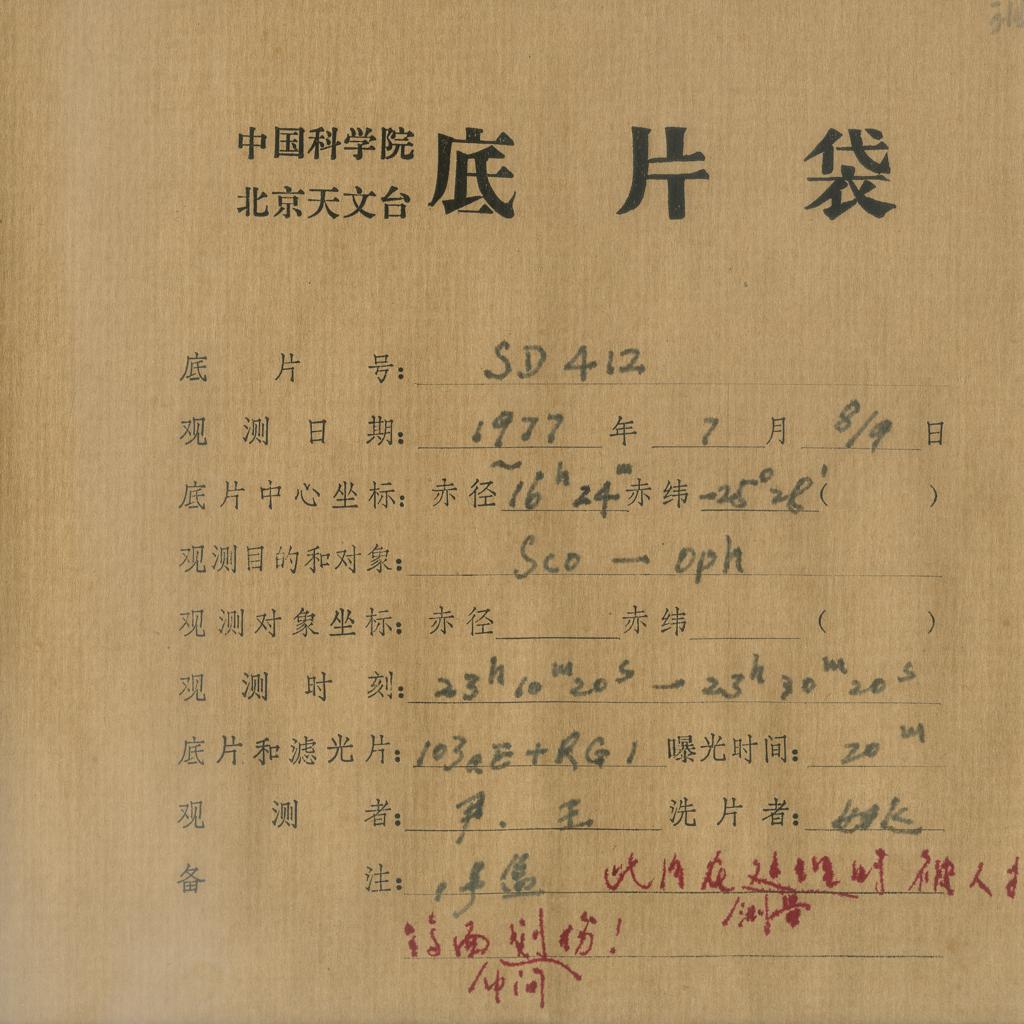 中国科学院
北京天文台
底片袋
底片号: SD 412
观测日期: 1977年7月8/9日
底片中心坐标: 赤径 ~16h24m 赤纬 -25°28′ ( )
观测目的和对象: Sco — oph
观测对象坐标: 赤径 赤纬 ( )
观测时刻: 23h10m20s — 23h30m20s
底片和滤光片: 103aE+RG1 曝光时间: 20m
观测者: 尹. 王 洗片者:
备注: 1号盒 此片在处理时被人
测量
药面划伤!
中间